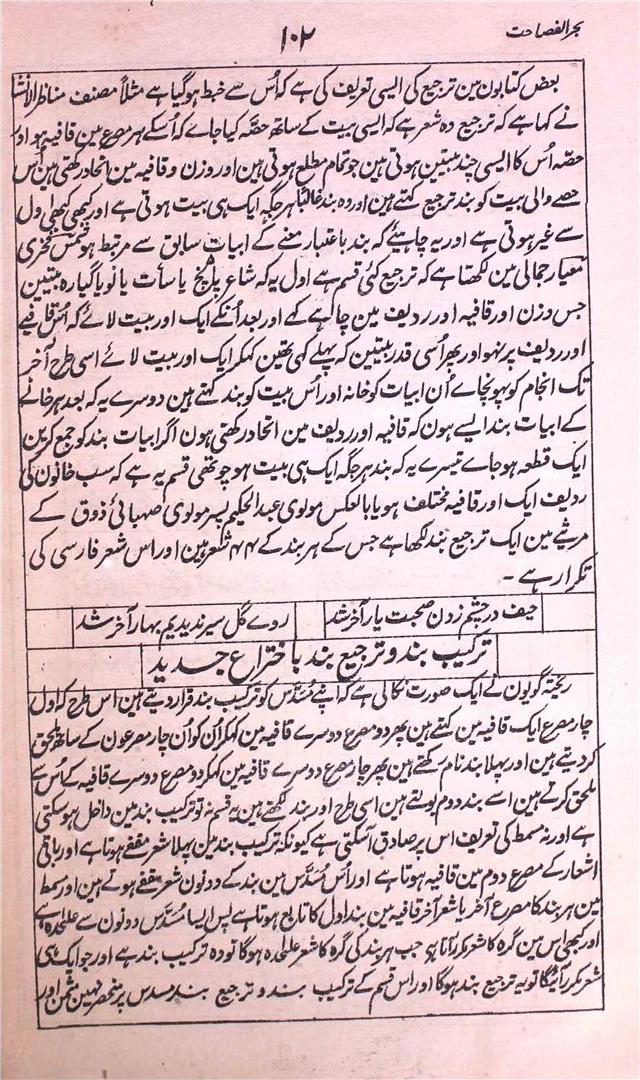 بحر الفصاحت
۱۰۲
بعض کتابون مین ترجیع کی ایسی تعریف کی ہے کہ اُس سے خبط ہوگیا ہے مثلاً مصنف مناظر الانشا
نے کہا ہے کہ ترجیع وہ شعر ہے کہ ایسی بیت کے ساتھ حصّہ کیا جاے کہ اُسکے ہر مصرع مین قافیہ ہو اور
حصّہ اُس کا ایسی چند بیتین ہوتی ہین جو تمام مطلع ہوتی ہین اور وزن و قافیہ مین اتحاد رکھتی ہین اُس
حصے والی بیت کو بند ترجیع کہتے ہین اور وہ بند غالباً ہر جگہ ایک ہی بیت ہوتی ہے اور کبھی کبھی اول
سے غیر ہوتی ہے اور یہ چاہیئے کہ بند باعتبار معنے کے ابیات سابق سے مرتبط ہو شمس فخری
معیار جمالی مین لکھتا ہے کہ ترجیع کئی قسم ہے اول یہ کہ شاعر پانچ یا سات یا نو یا گیارہ بیتین
جس وزن اور قافیہ اور ردیف مین چاہے کہے اور بعد اُنکے ایک اور بیت لائے کہ اُس قافیے
اور ردیف پر نہو اور پھر اُسی قدر بیتین کہ پہلے کہی تھین کہکر ایک اور بیت لائے اسی طرح آخر
تک انجام کو پہونچاے اُن ابیات کو خانہ اور اُس بیت کو بند کہتے ہین دوسرے یہ کہ بعد ہر خانے
کے ابیات بند ایسے ہون کہ قافیہ اور ردیف مین اتحاد رکھتی ہون اگر ابیات بند کو جمع کرین
ایک قطعہ ہو جاے تیسرے یہ کہ بند ہر جگہ ایک ہی بیت ہو چوتھی قسم یہ ہے کہ سب خانون کی
ردیف ایک اور قافیہ مختلف ہو یا بالعکس مولوی عبدالحکیم پسر مولوی صہبائی ذوق کے
مرثیے مین ایک ترجیع بند لکھا ہے جس کے ہر بند کے ۴۴ شعر ہین اور اس شعر فارسی کی
تکرار ہے ۔
حیف در چشم زدن صحبت یار آخر شد روے گل سیر ندیدیم بہار آخر شد
ترکیب بند و ترجیع بند باختراع جدید
ریختہ گویون نے ایک صورت نکالی ہے کہ اپنے مُسَدَّس کو ترکیب بند قرار دیتے ہین اس طرح کہ اول
چار مصرع ایک قافیہ مین کہتے ہین پھر دو مصرع دوسرے قافیہ مین کہکر اُن کو اُن چار مصرعون کے ساتھ ملحق
کر دیتے ہین اور پہلا بند نام رکھتے ہین پھر چار مصرع دوسرے قافیہ مین کہکر دو مصرع دوسرے قافیہ کے اُس سے
ملحق کرتے ہین اسے بند دوم بولتے ہین اسی طرح اور بند لکھتے ہین یہ قسم نہ تو ترکیب بند مین داخل ہو سکتی
ہے اور نہ مسمط کی تعریف اس پر صادق آسکتی ہے کیونکہ ترکیب بند مین پہلا شعر مقفّے ہوتا ہے اور باقی
اشعار کے مصرع دوم مین قافیہ ہوتا ہے اور اُس مُسَدَّس مین بند کے دونون شعر مقفّے ہوتے ہین اور مسمط
مین ہر بند کا مصرع آخر یا شعر آخر قافیہ مین بند اول کا تابع ہوتا ہے پس ایسا مُسَدَّس دونون سے علٰحدہ ہے
اور کبھی اس مین گرہ کا شعر مکرر آتا ہے جب ہر بند کی گرہ کا شعر علٰحدہ ہوگا تو وہ ترکیب بند ہے اور جو ایک ہی
شعر مکرر آئیگا تو یہ ترجیع بند ہوگا اور اس قسم کے ترکیب بند و ترجیع بند مسدس پر منحصر نہین مثمن اور